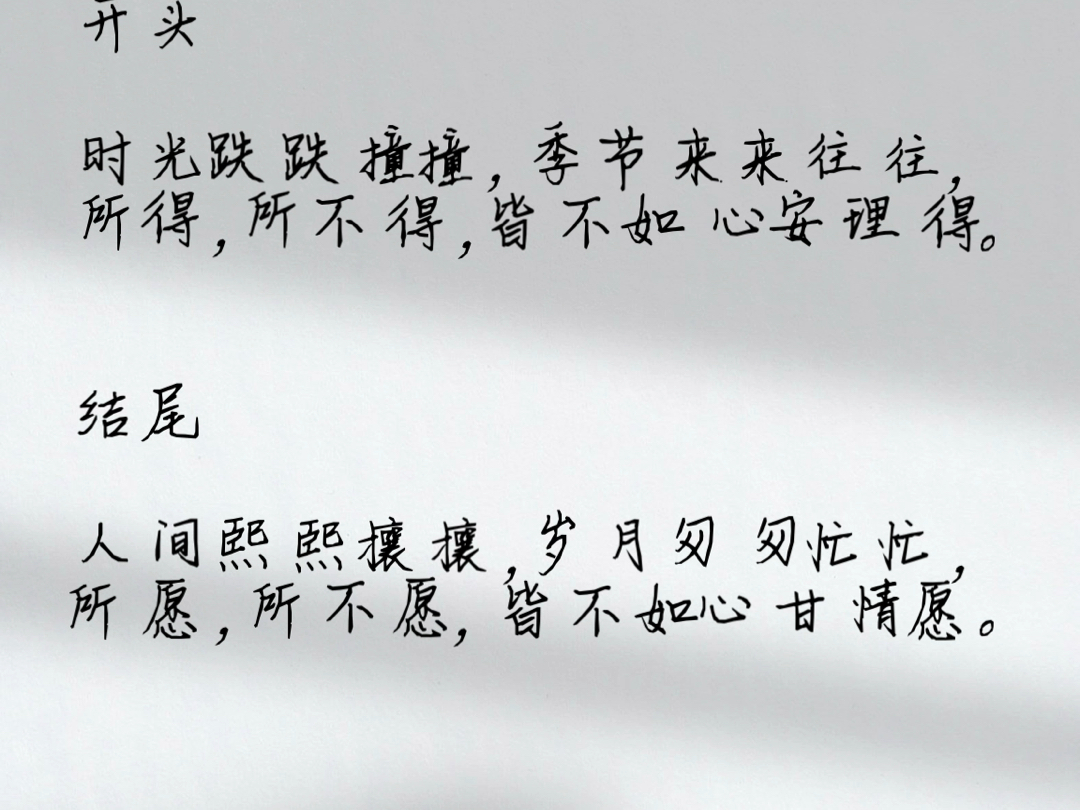 开头
时光跌跌撞撞,季节来来往往,
所得,所不得,皆不如心安理得。
结尾
人间熙熙攘攘,岁月匆匆忙忙,
所愿,所不愿,皆不如心甘情愿。